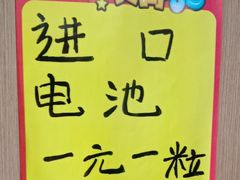 进口
电池
一元一粒